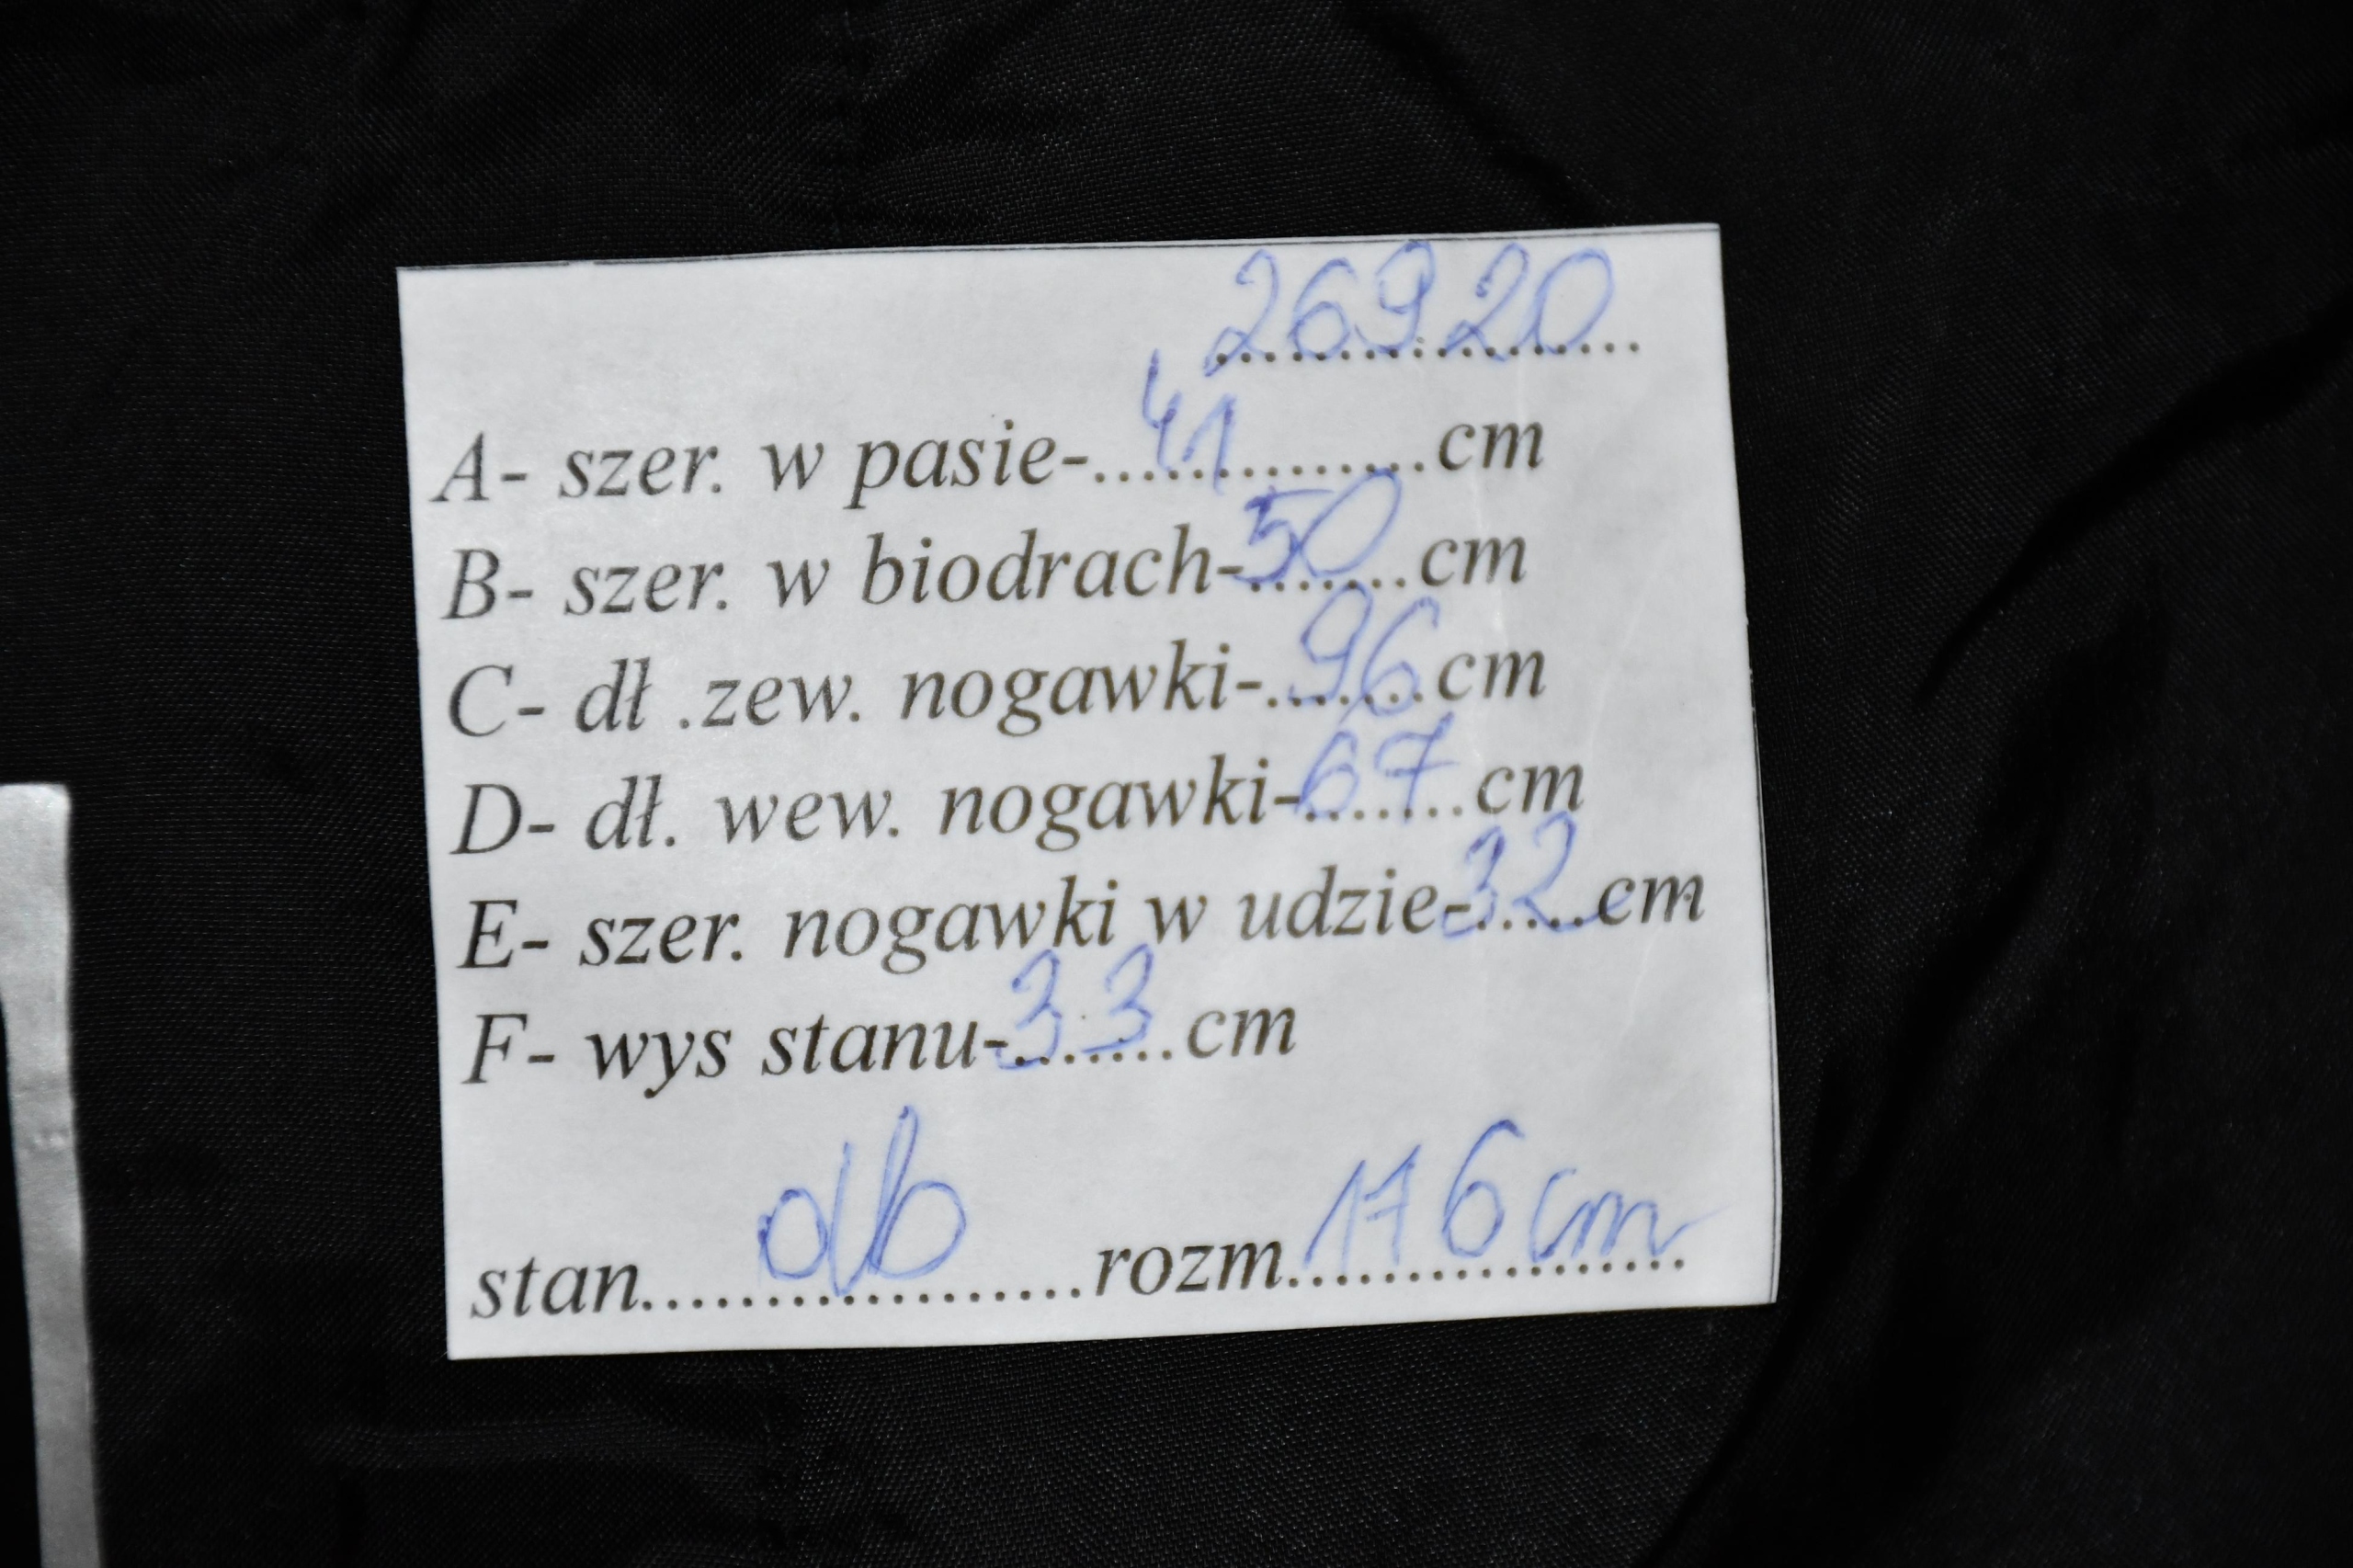 26920
A- szer. w pasie-41cm
B- szer. w biodrach-50cm
C- dł .zew. nogawki-96cm
D- dł. wew. nogawki-67cm
E- szer. nogawki w udzie-32cm
F- wys stanu-33cm
stan db rozm 176cm